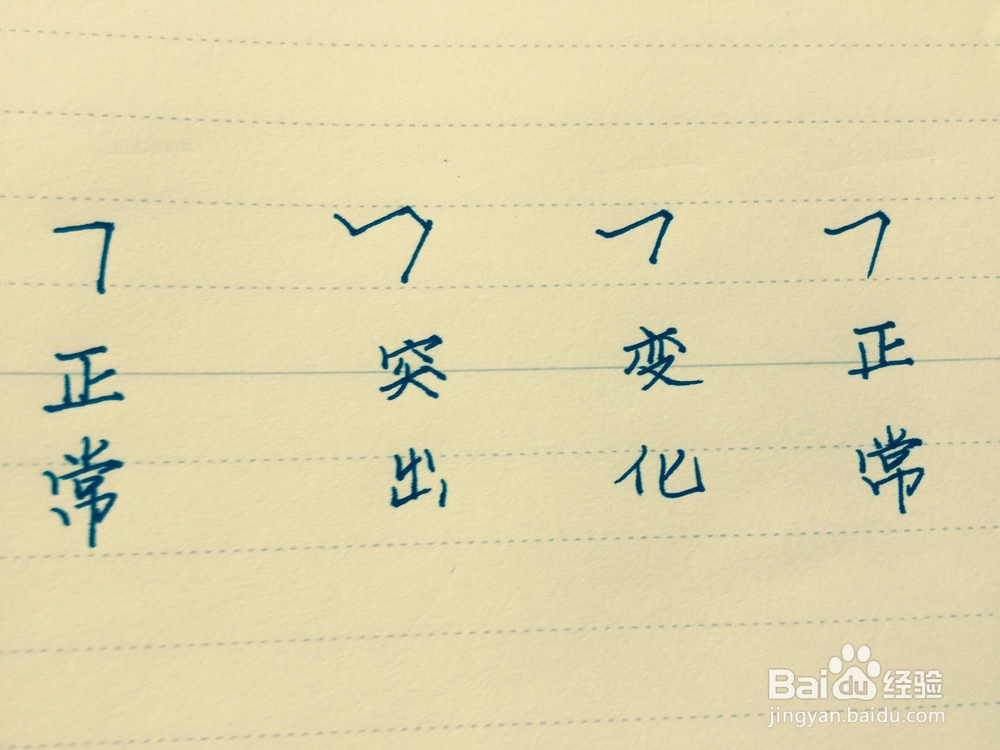 ㇕ ㇕ ㇕ ㇕
正常 突出 变化 正常
Baidu经验
jingyan.baidu.com